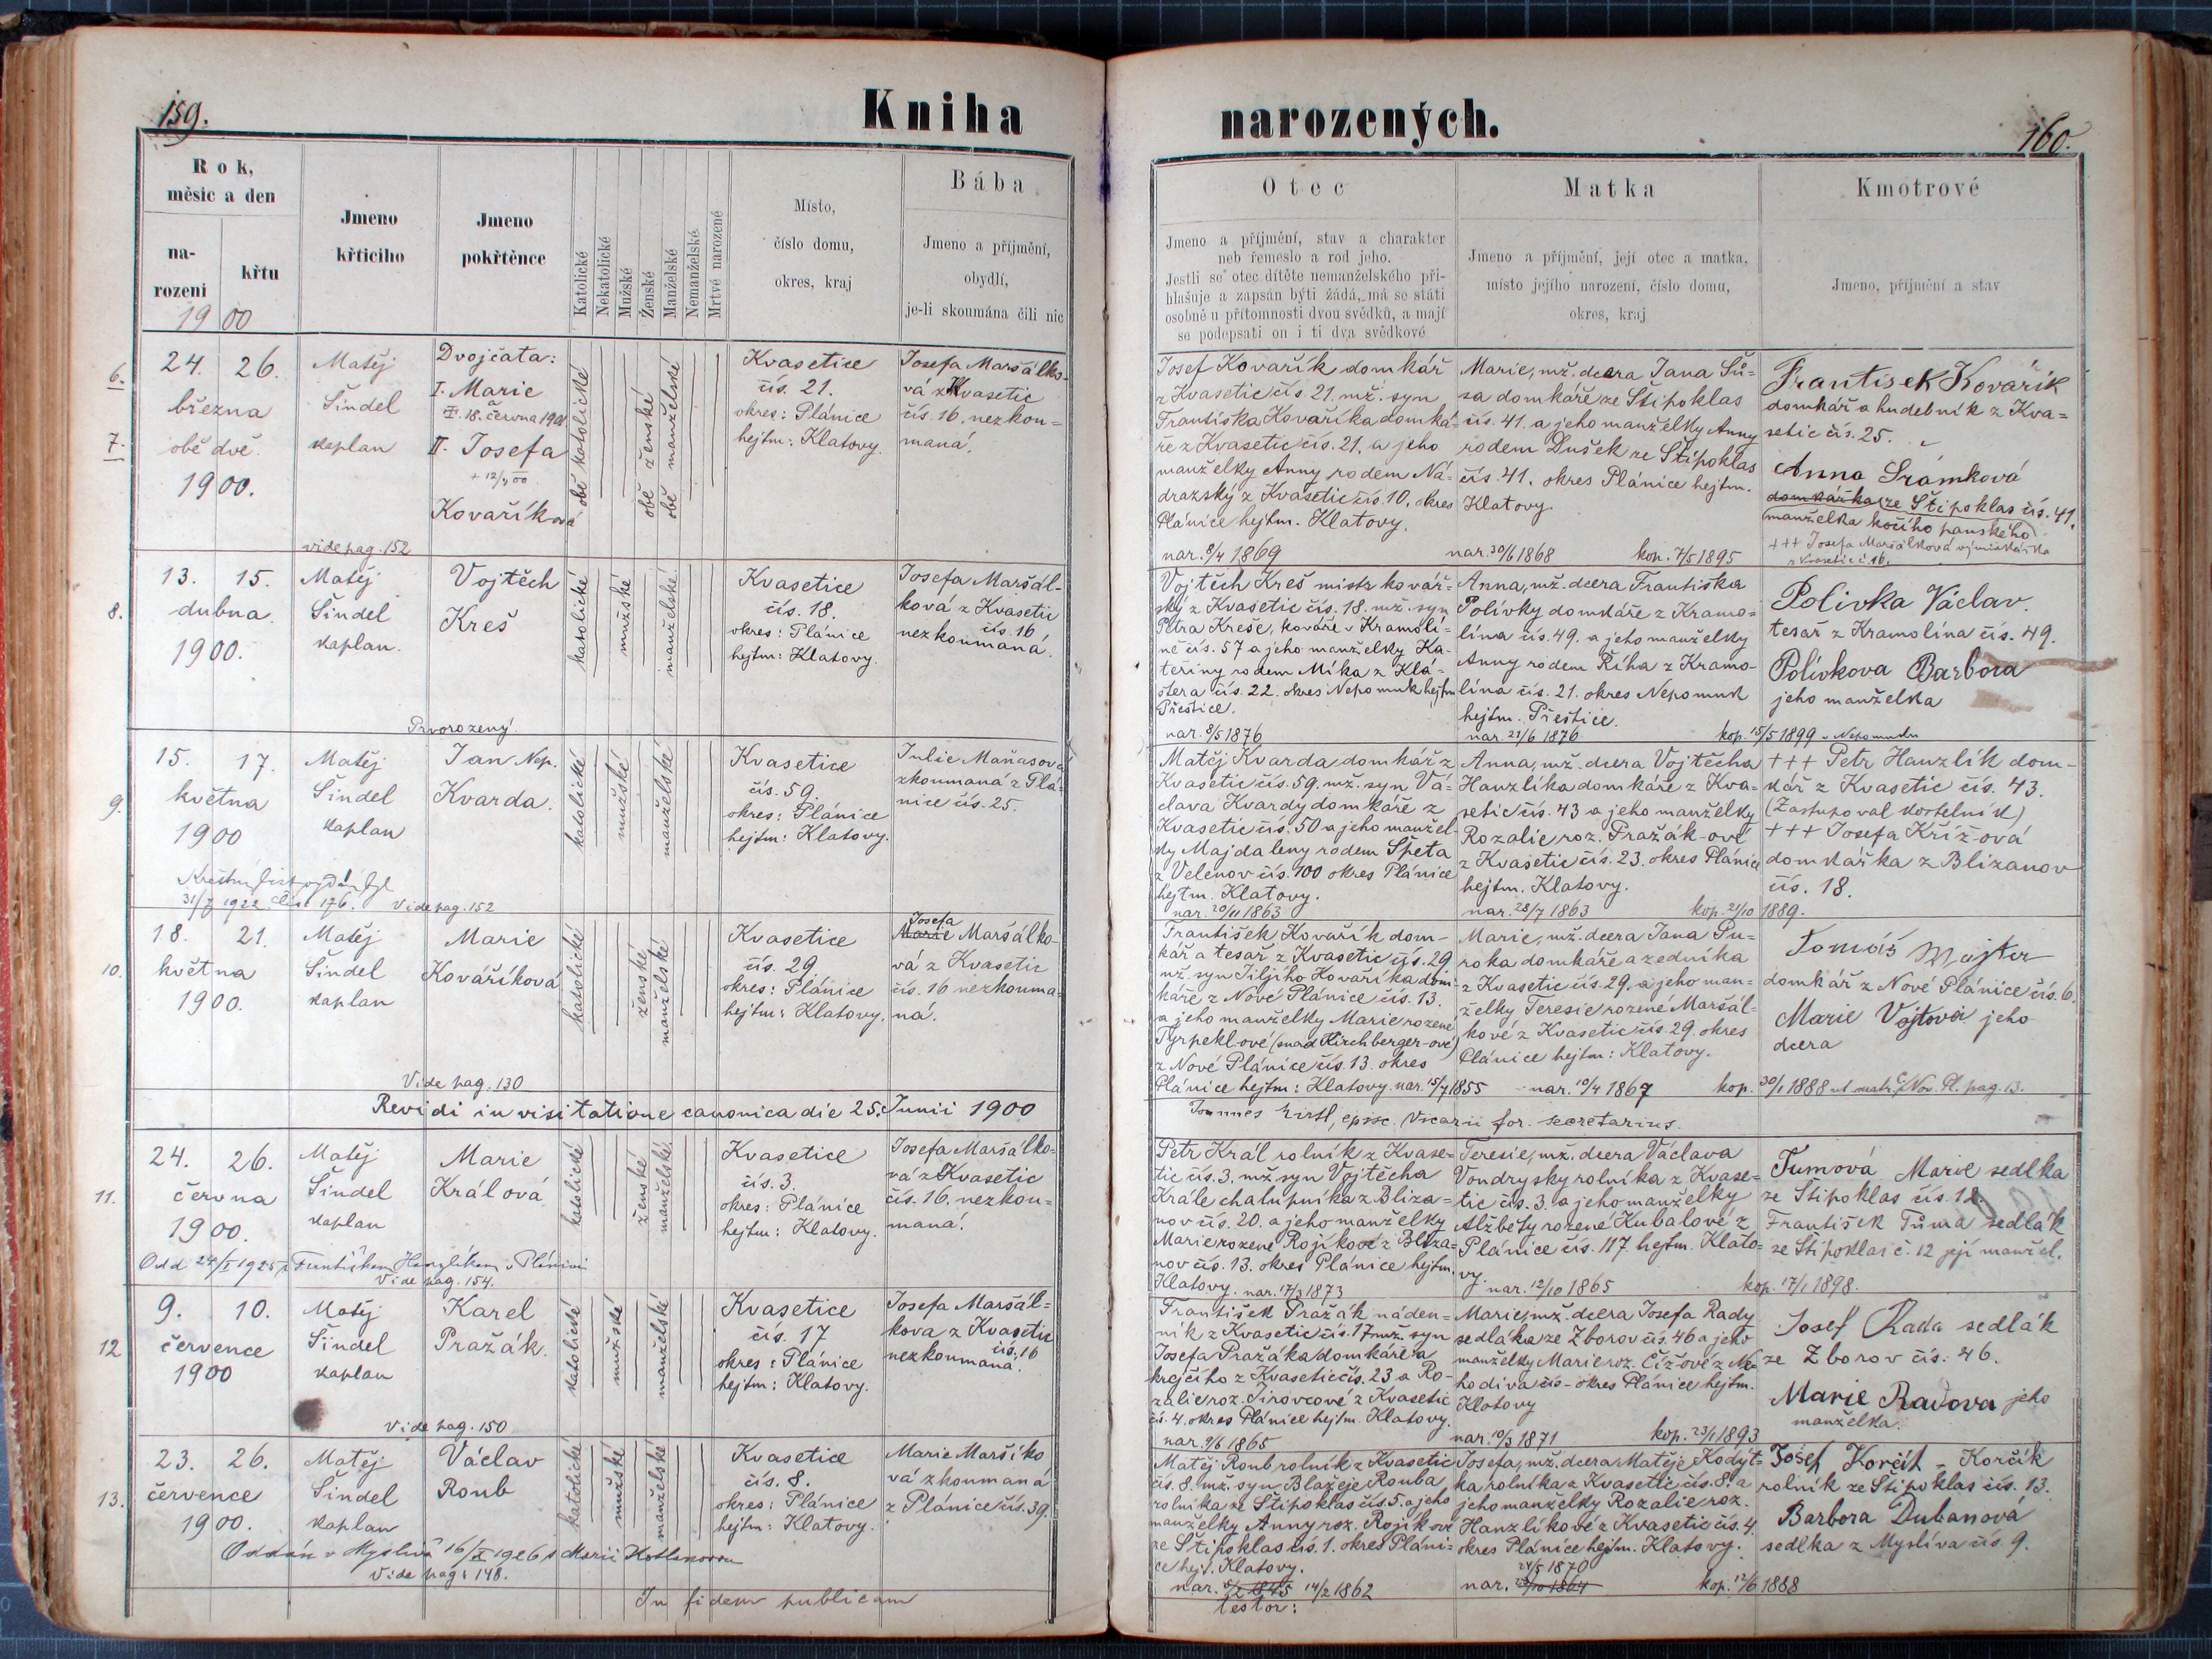 159.
Kniha
Rok,
měsíc a den
na-
rozeni
křtu
1900
Jmeno
křticiho
Jmeno
pokřtěnce
Katolické
Nekatolické
Mužské
Ženské
Manželské
Nemanželské
Mrtvé narozené
Místo,
číslo domu,
okres, kraj
Bába
Jmeno a příjmění,
obydlí,
je-li skoumána čili nic
6.
7.
24. 26.
března
obě dvě
1900.
Matěj
Šindel
kaplan
Dvojčata:
I. Marie
18. června 1901
II. Josefa
+ 12/4 00
Kovaříková
obě katolické
obě ženské
obě manželské
Kvasetice
čís. 21.
okres: Plánice
hejtm: Klatovy.
Josefa Maršálko-
vá z Kvasetic
čís. 16. nezkou=
maná.
vide pag. 152
8.
13. 15.
dubna.
1900.
Matěj
Šindel
kaplan.
Vojtěch
Kreš
katolické
mužské
manželské
Kvasetice
čís. 18.
okres: Plánice
hejtm: Klatovy.
Josefa Maršál-
ková z Kvasetic
čís. 16
nezkoumaná.
Prvorozený.
9.
15. 17.
května
1900
Matěj
Šindel
kaplan
Jan Nep.
Kvarda.
katolické
mužské
manželské
Kvasetice
čís. 59.
okres: Plánice
hejtm: Klatovy.
Julie Maňasová
zkoumaná z Plá-
nice čís. 25.
31/7 1922. čís. 176. Vide pag. 152
10.
18. 21.
května
1900.
Matěj
Šindel
kaplan
Marie
Kovaříková
katolické
ženské
manželské
Kvasetice
čís. 29
okres: Plánice
hejtm: Klatovy.
Josefa
Marie Maršálko-
vá z Kvasetic
čís. 16 nezkouma-
ná.
Vide pag. 130
Revidi in visitatione canonica die 25. Junii 1900
11.
24. 26.
června
1900.
Matěj
Šindel
kaplan
Marie
Králová
katolické
ženské
manželské
Kvasetice
čís. 3.
okres: Plánice
hejtm: Klatovy.
Josefa Maršálko-
vá z Kvasetic
čís. 16. nezkou=
maná.
Odd 1925 s Františkem Hanzlíkem v Plánici
Vide pag. 154.
12
9. 10.
července
1900
Matěj
Šindel
kaplan
Karel
Pražák.
katolické
mužské
manželské
Kvasetice
čís. 17
okres: Plánice
hejtm: Klatovy.
Josefa Maršál=
kova z Kvasetic
čís. 16
nezkoumaná.
Vide pag. 150
13.
23. 26.
července
1900.
Matěj
Šindel
kaplan
Václav
Roub
katolické
mužské
manželské
Kvasetice
čís. 8.
okres: Plánice
hejtm: Klatovy.
Marie Maršíko
vá zkoumaná
z Plánice čís. 39.
Oddán v Myslivě 16/X 1926 s Marií
Vide pag: 148.
In fidem publicam
narozených.
160.
Otec
Jmeno a příjmění, stav a charakter
neb řemeslo a rod jeho.
Jestli se otec dítěte nemanželského při-
hlašuje a zapsán býti žádá, má se státi
osobně u přítomnosti dvou svědků, a mají
se podepsati on i ti dva svědkové
Matka
Jmeno a příjmění, její otec a matka,
místo jejího narození, číslo domu,
okres, kraj
Kmotrové
Jmeno, příjmění a stav
Josef Kovařík domkář
z Kvasetic čís. 21. mž. syn
Františka Kovaříka domká-
ře z Kvasetic čís. 21. a jeho
manželky Anny rodem Ná-
dražský z Kvasetic čís. 10. okres
Plánice hejtm. Klatovy.
nar. 8/4 1869
Marie, mž. dcera Jana Šů-
sa domkáře ze Štipoklas
čís. 41. a jeho manželky Anny
rodem Dušek ze Štipoklas
čís. 41. okres Plánice hejtm.
Klatovy.
nar. 30/6 1868 kop. 7/5 1895
František Kovařík
domkář a hudebník z Kva=
setic čís. 25.
Anna Šrámková
domkářka ze Štipoklas čís. 41.
(manželka kočího panského)
+++ Josefa Maršálková výminkářka
z Kvasetic č. 16.
Vojtěch Kreš mistr kovář-
ský z Kvasetic čís. 18. mž. syn
Petra Kreše, kováře v Kramolí-
ně čís. 57 a jeho manželky Ka-
teřiny rodem Míka z Klá-
štera čís. 22. okres Nepomuk hejtm
Přeštice.
nar. 8/5 1876
Anna, mž. dcera Františka
Polívky domkáře z Kramo=
lína čís. 49. a jeho manželky
Anny rodem Říha z Kramo-
lína čís. 21. okres Nepomuk
hejtm. Přeštice.
nar. 22/6 1876 kop. 15/5 1899 v Nepomuku
Polivka Václav.
tesař z Kramolína čís. 49.
Polivkova Barbora
jeho manželka
Matěj Kvarda domkář z
Kvasetic čís. 59. mž. syn Vá-
clava Kvardy domkáře z
Kvasetic čís. 50 a jeho manžel-
ky Majdaleny rodem Špeta
z Velenov čís. 100 okres Plánice
hejtm. Klatovy.
nar. 20/11 1863
Anna, mž. dcera Vojtěcha
Hanzlíka domkáře z Kva=
setic čís. 43 a jeho manželky
Rozalie roz. Pražák-ové
z Kvasetic čís. 23. okres Plánice
hejtm. Klatovy.
nar. 28/7 1863 kop. 21/10 1889.
+++ Petr Hanzlík dom-
kář z Kvasetic čís. 43.
(Zastupoval kostelník)
+++ Josefa Kříž-ová
domkářka z Blizanov
čís. 18.
František Kovařík dom-
kář a tesař z Kvasetic čís. 29
mž. syn Jiljího Kovaříka dom-
káře z Nové Plánice čís. 13.
a jeho manželky Marie rozené
Tyrpekl-ové (snad Hirchberger-ové)
z Nové Plánice čís. 13 okres
Plánice hejtm: Klatovy. nar. 15/7 1855
Marie, mž. dcera Jana Pu=
roka domkáře a zedníka
z Kvasetic čís. 29. a jeho man-
želky Teresie rozené Maršál-
kové z Kvasetic čís. 29. okres
Plánice hejtm: Klatovy.
nar. 10/4 1867 kop. 30/1 1888 Nov. Pl. pag. 13.
Tomáš Majster
domkář z Nové Plánice čís. 6.
Marie Vojtova jeho
dcera
episc. Vicarii for. secretarius.
Petr Král rolník z Kvase=
tic čís. 3. mž. syn Vojtěcha
Krále chalupníka z Bliza=
nov čís. 20. a jeho manželky
Marie rozené Rojíkové z Bliza=
nov čís. 13. okres Plánice hejtm.
Klatovy. nar. 17/3 1873
Teresie, mž. dcera Václava
Vondrysky rolníka z Kvase=
tic čís. 3. a jeho manželky
Alžběty rozené Kubalové z
Plánice čís. 117. hejtm. Klato=
vy. nar. 12/10 1865 kop. 17/1 1898.
Tumová Marie sedlka
ze Štipoklas čís. 12.
František Tůma sedlák
ze Štipoklas č. 12 její manžel.
František Pražák náden-
ník z Kvasetic čís. 17 mž. syn
Josefa Pražáka domkáře a
krejčího z Kvasetic čís. 23 a Ro-
zalie roz. Jirovcové z Kvasetic
čís. 4. okres Plánice hejtm. Klatovy.
nar. 9/6 1865
Marie, mž. dcera Josefa Rady
sedláka ze Zborov čís. 46 a jeho
manželky Marie roz. Čížové z Ne=
hodiva čís – okres Plánice hejtm.
Klatovy
nar. 10/3 1871 kop. 23/1 1893
Josef Rada sedlák
ze Zborov čís: 46.
Marie Radova jeho
manželka.
Matěj Roub rolník z Kvasetic
čís. 8. mž. syn Blažeje Rouba
rolníka ze Štipoklas čís. 5. a jeho
manželky Anny roz. Rojíkové
ze Štipoklas čís. 1. okres Pláni=
ce hejt. Klatovy.
nar. 14/2 1862
testor:
Josefa, mž. dcera Matěje Kodýt=
ka rolníka z Kvasetic čís. 8. a
jeho manželky Rozalie roz.
Hanzlíkové z Kvasetic čís. 4.
okres Plánice hejtm. Klatovy.
24/5 1870
nar. kop. 12/6 1888
Josef Korčík – Korčík
rolník ze Štipoklas čís. 13.
Barbora Dubanová
sedlka z Myslíva čís. 9.